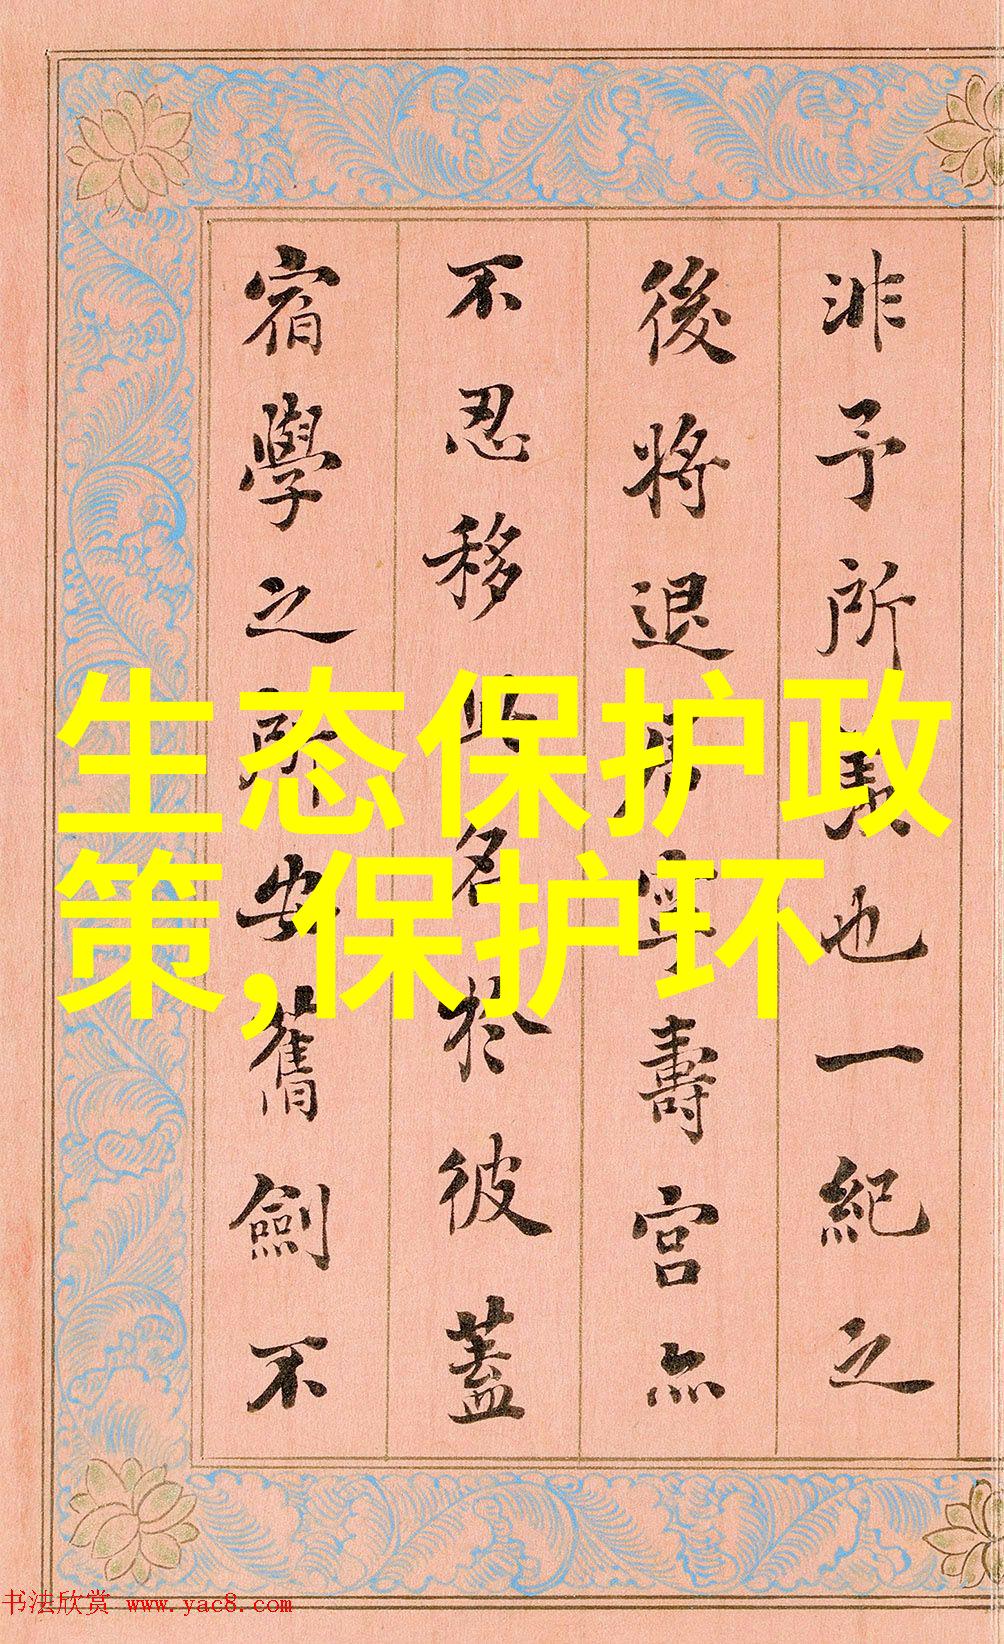 生态保护政
策,保护环
非予所也一紀之
後將退居寧壽宮亦
不忍移此名於彼蓋
宿學之所安舊劍不
书法欣赏 www.yac8.com